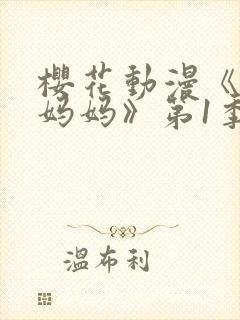 櫻花動漫《
妈妈》第1季
溫布利